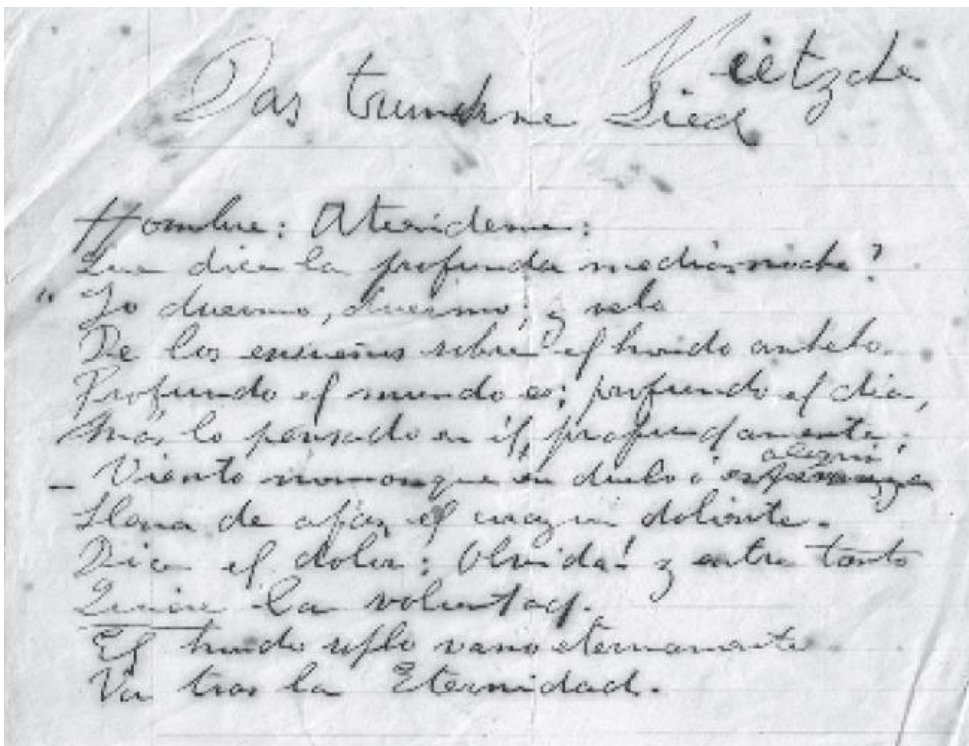 Nietzche
Das trunkne Lied
Hombre: Atendeme:
Que dice la profunda media noche?
"Yo duermo, duermo, y velo
De los ensueños sobre el hondo anhelo.
Profundo el mundo es; profundo el dia,
Más lo pensado en él, profundamente.
- Viento que en duelo ó alegria
Llena de afán el corazon doliente.
Dice el dolor: Olvida! y entre tanto
Quiere la voluntad.
El hondo soplo vano eternamente
Va tras la Eternidad.